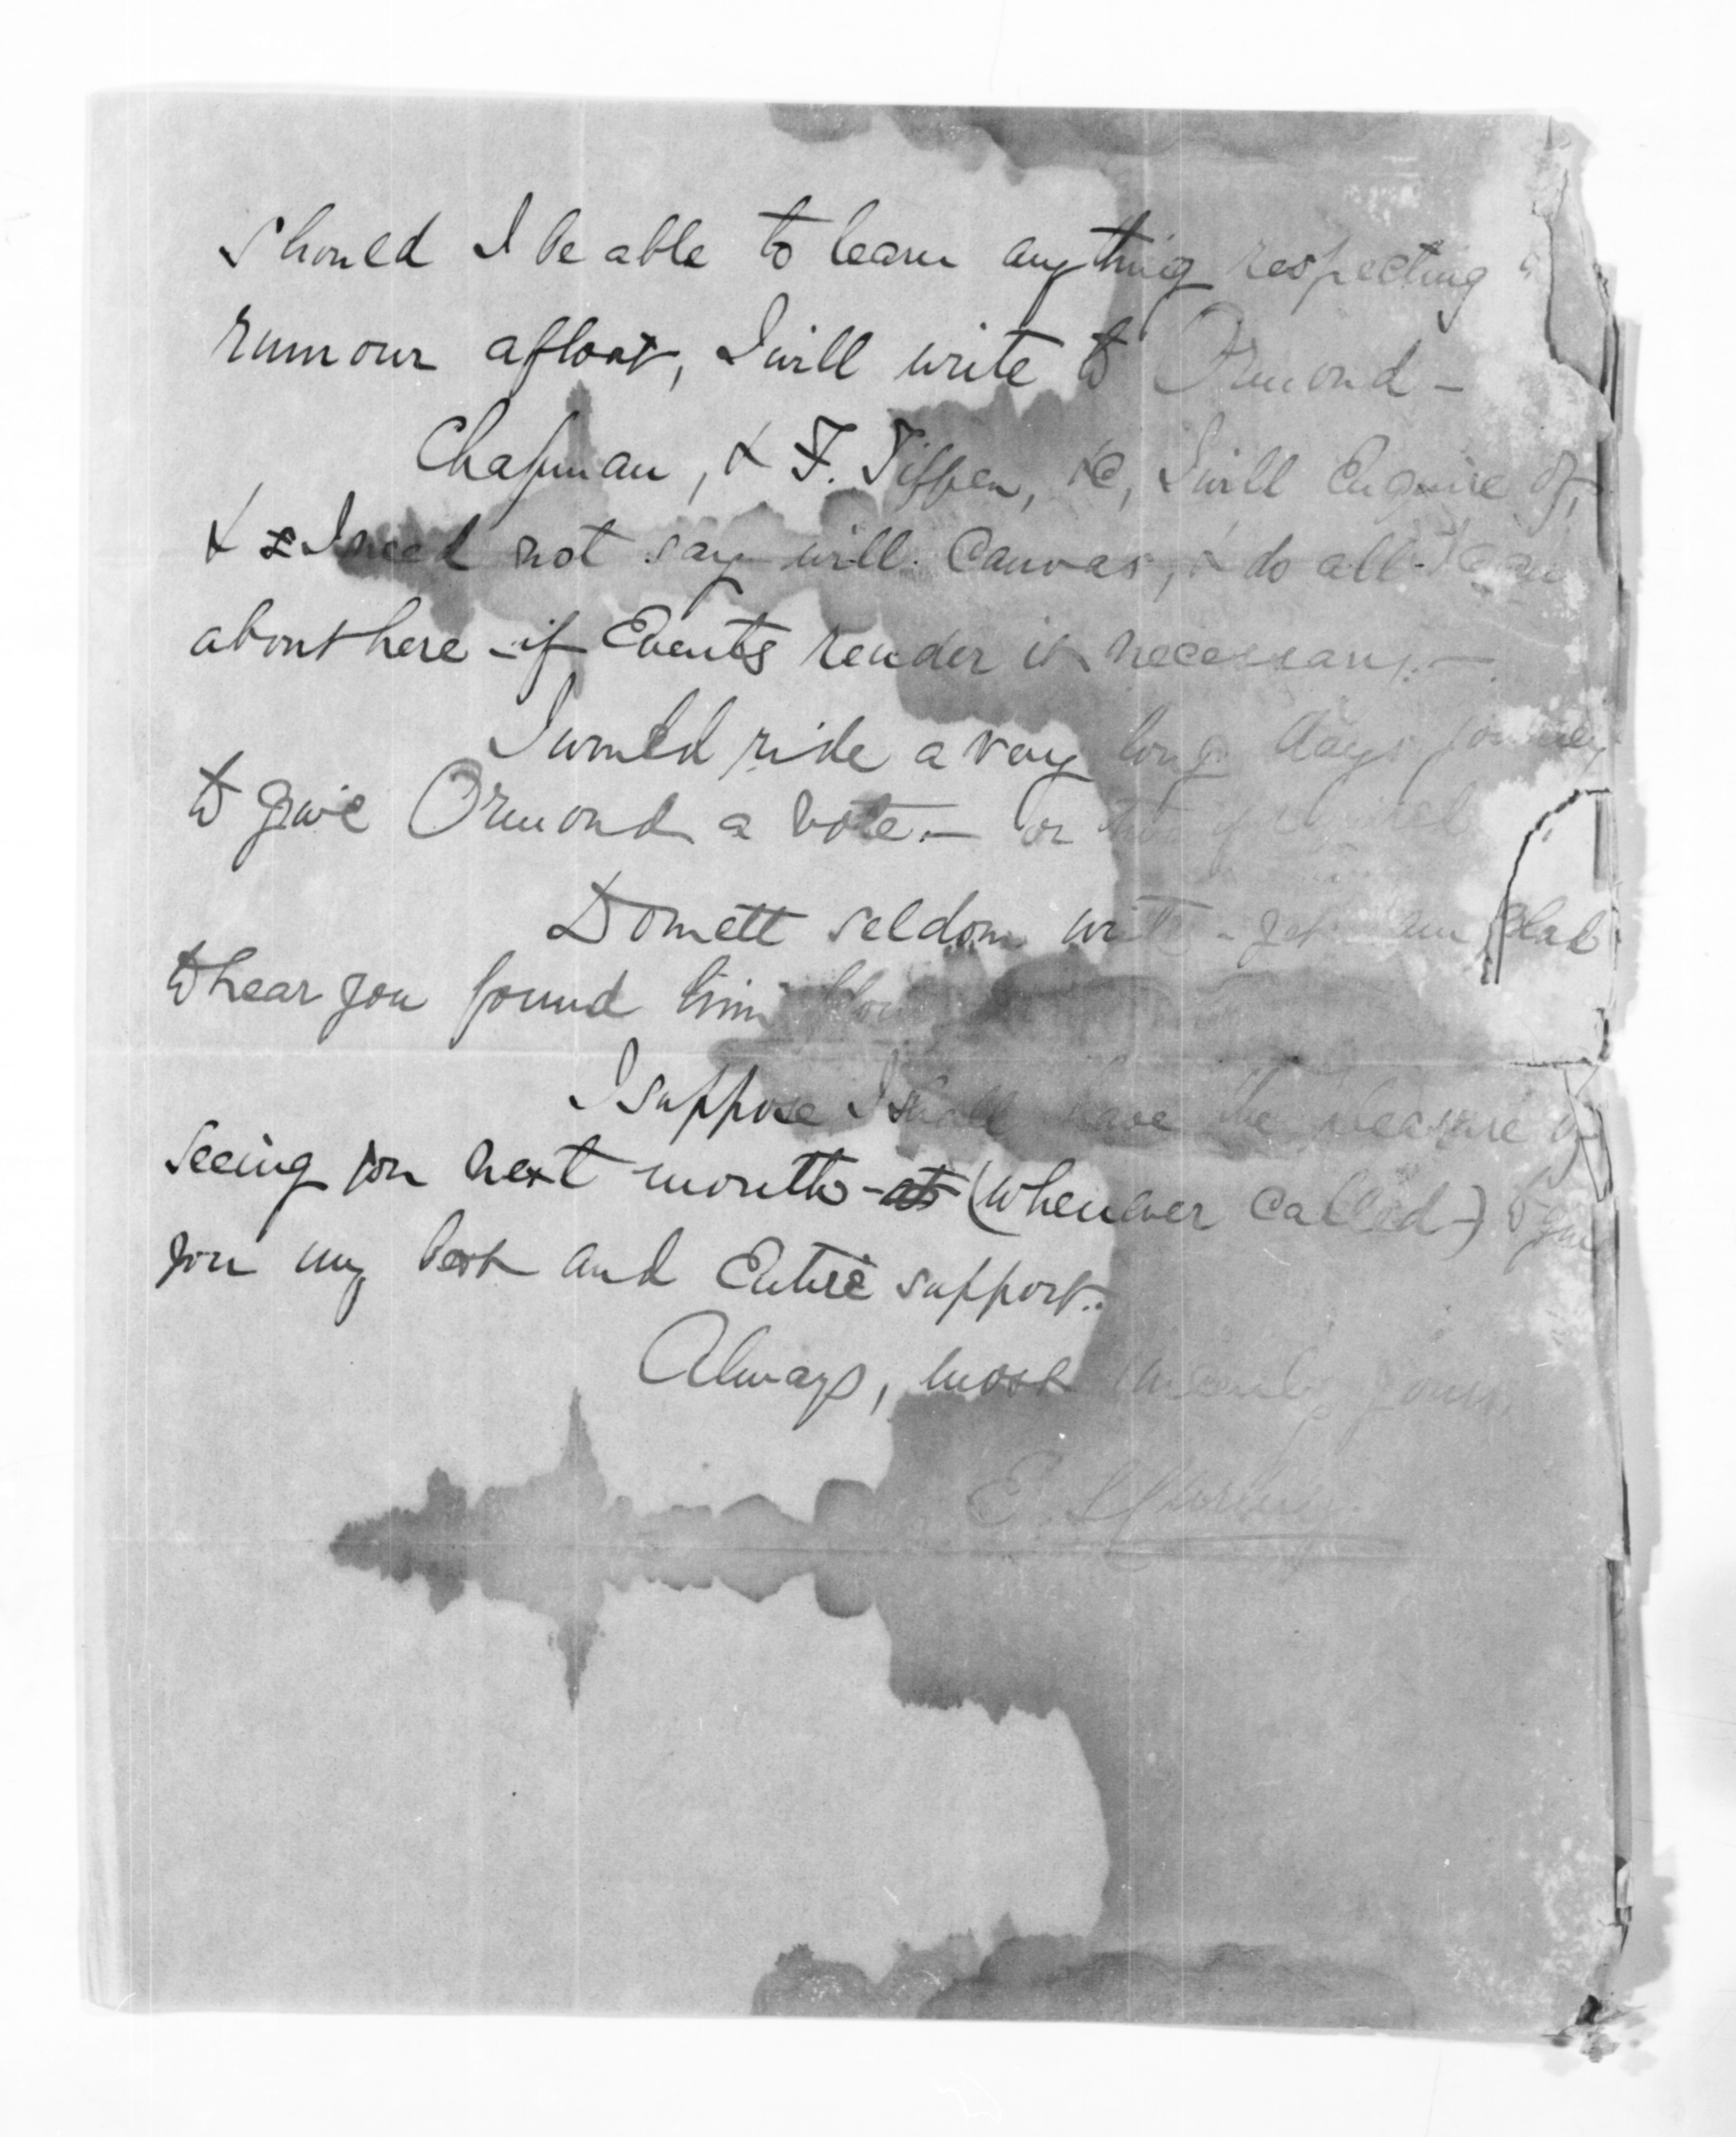 Should I be able to learn anything respecting
rumour afloat, I will write to Ormond –
Chapman, & F. Tiffen, &c, I will Enquire of,
& I need not say will Canvas, & do all I can
about here – if Events render it necessary. –
I would ride a very long days journey
to give Ormond a vote. – or
Domett seldom write – yet am glad
to hear you found him
I suppose I shall have the pleasure of
seeing you next month – at (whenever called –) to give
you my best and Entire support.
Always, most sincerely yours,
E.